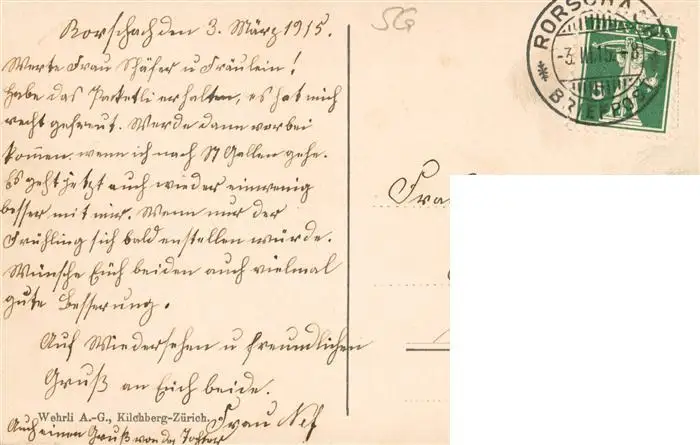 SG
RORSCHACH
-3.III.15.-8
BRIEFPOST
HELVETIA
Rorschach den 3. März 1915.
Werte Frau Schäfer u Fräulein!
Habe das Paketli erhalten, es hat mich
recht gefreut. Werde dann vorbei
kommen, wenn ich nach St Gallen gehe.
Es geht jetzt auch wieder einwenig
besser mit mir. Wenn nur der
Frühling sich bald einstellen würde.
Wünsche Euch beiden auch vielmal
gute Besserung.
Auf Wiedersehen u freundlichen
Gruß an Euch beide.
Frau Nef
Wehrli A.-G., Kilchberg-Zürich.
Auch einen Gruß von der Tochter